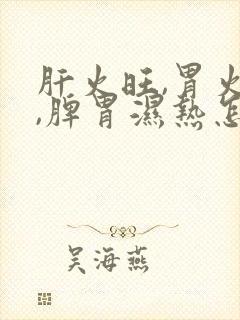 肝火旺,胃火
,脾胃濕熱怎
吴海燕